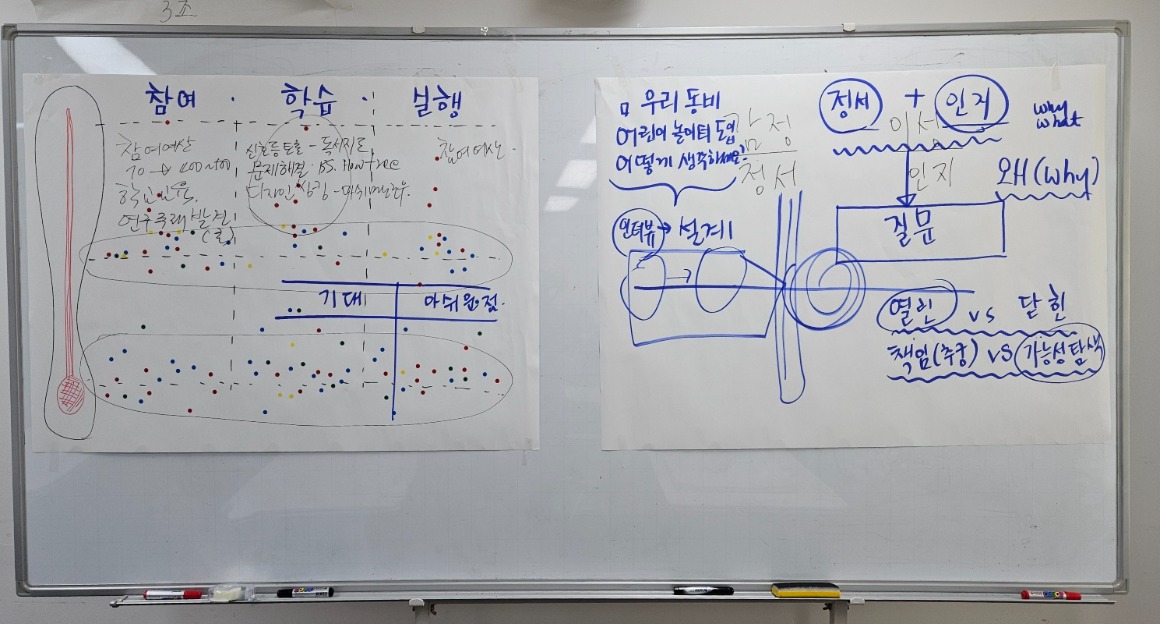 3조
참여 · 학습 · 실행
참여예산
70 → 200
학교교육,
연구주제 발견
신호등토론 - 독서지도,
문제해결 : BS. How tree
디자인씽킹 -
참여예산.
기대
아쉬운점.
ㅁ 우리 동네
어린이 놀이터 도입
어떻게 생각하세요?
인터뷰 → 설계!
감정
정서
정서 + 인지
이성
인지
why
what
왜(why)
질문
열린 vs 닫힌
책임(추궁) vs 가능성탐색